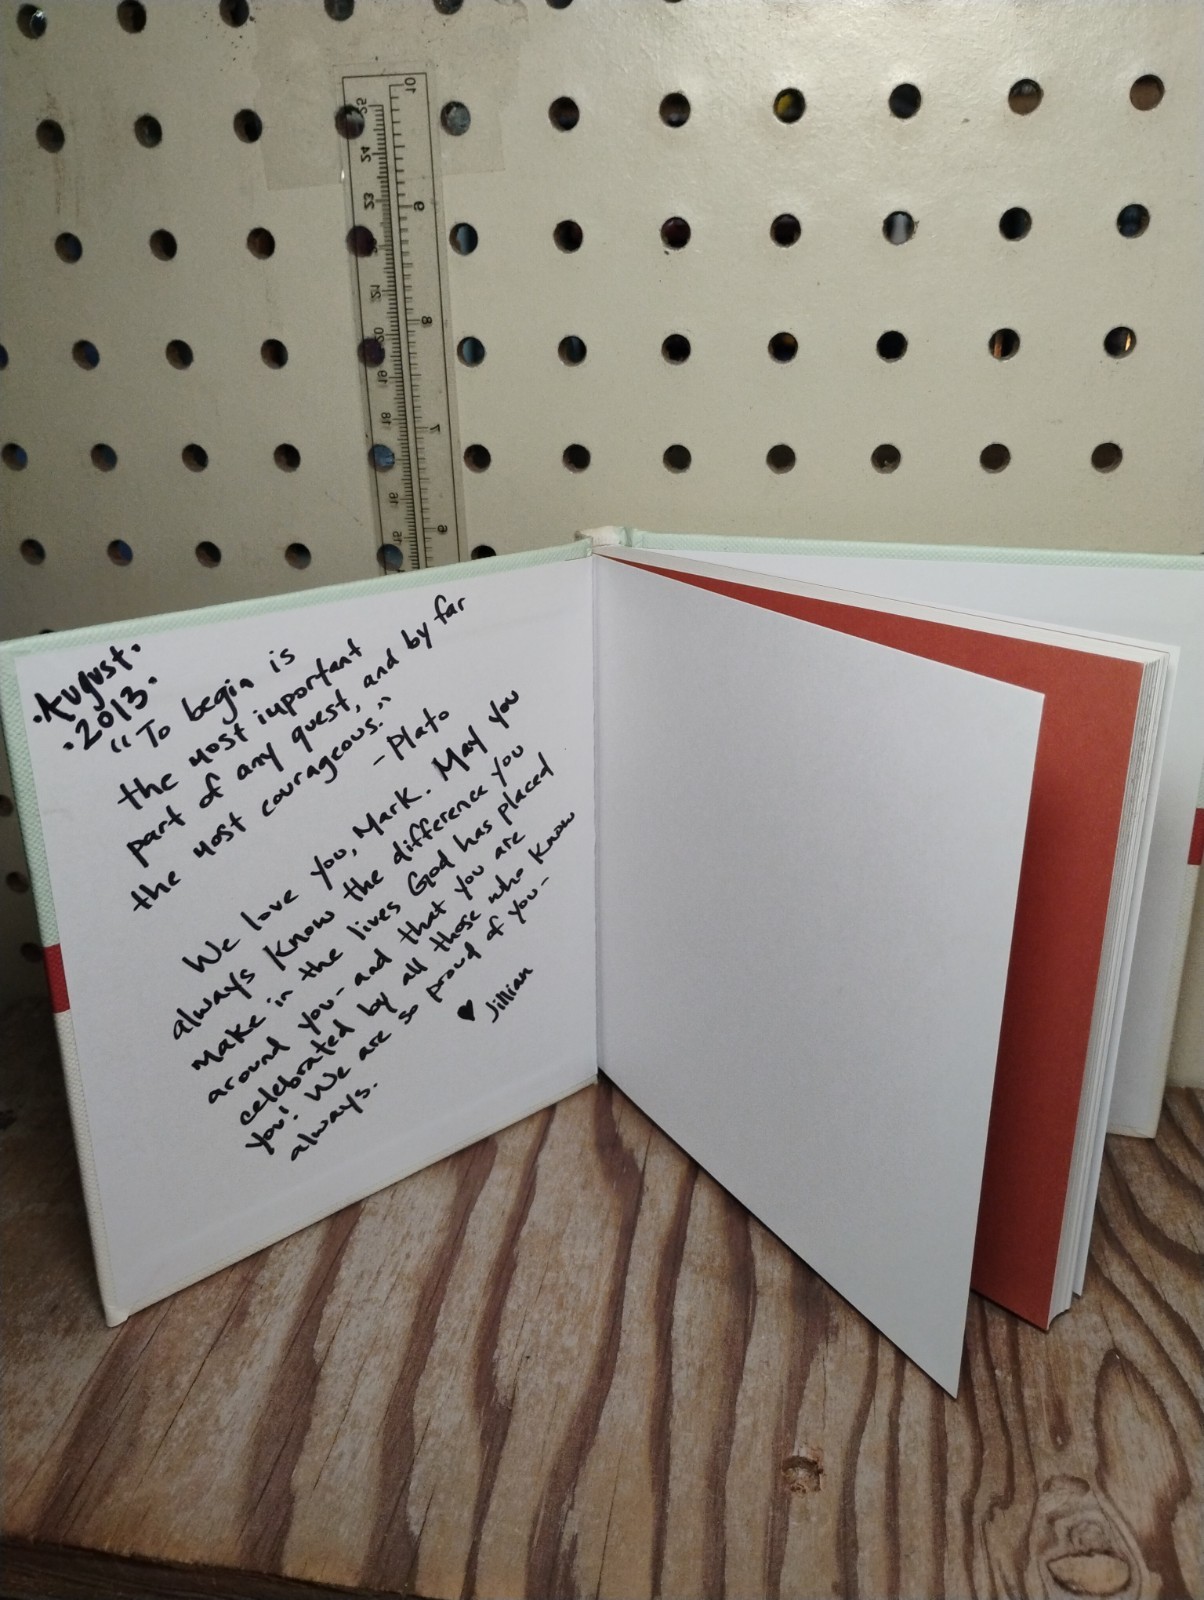 10
9
8
7
6
25
24
23
21
20
19
18
16
15
·August·
·2013·
"To begin is
the most important
part of any quest, and by far
the most courageous."
-Plato
We love you, Mark. May you
always know the difference you
make in the lives God has placed
around you- and that you are
celebrated by all those who know
you! We are so proud of you-
always.
♥ Jillian